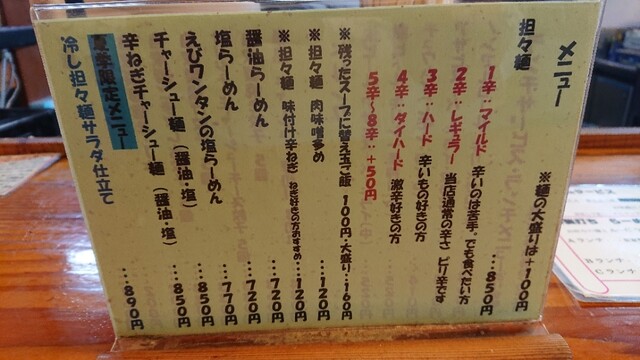 メニュー
※麺の大盛りは+100円
担々麺
1辛‥マイルド 辛いのは苦手。でも食べたい方 …850円
2辛‥レギュラー 当店通常の辛さ ピリ辛です
3辛‥ハード 辛いもの好きの方
4辛‥ダイハード 激辛好きの方
5辛〜8辛‥+50円
※残ったスープに替え玉ご飯 100円・大盛り・160円
※担々麺 肉味噌多め …120円
※担々麺 味付け辛ねぎ ねぎ好きの方おすすめ…120円
醤油らーめん …720円
塩らーめん …720円
えびワンタンの塩らーめん …770円
チャーシュー麺(醤油・塩) …850円
辛ねぎチャーシュー麺(醤油・塩) …850円
夏季限定メニュー
冷し担々麺サラダ仕立て …890円